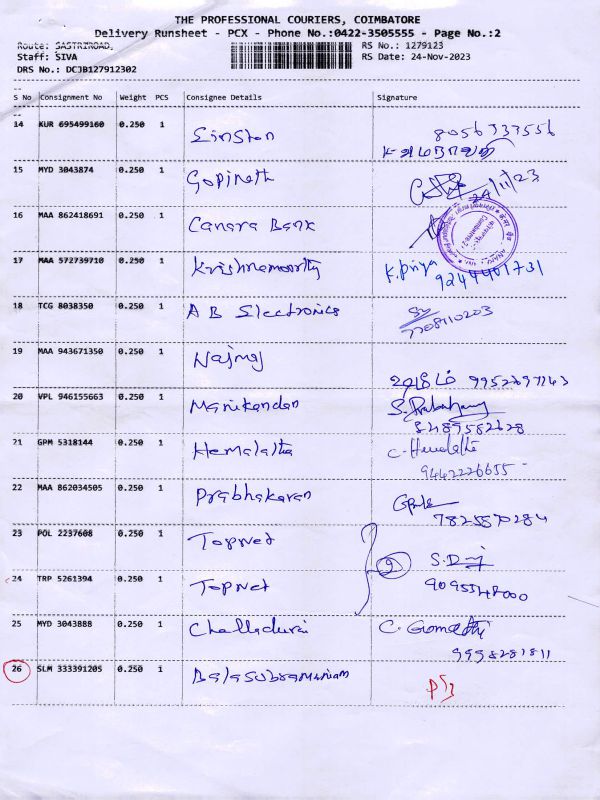 THE PROFESSIONAL COURIERS, COIMBATORE
Delivery Runsheet - PCX - Phone No.:0422-3505555 - Page No.:2
Route: SASTRIROAD, RS No.: 1279123
Staff: SIVA RS Date: 24-Nov-2023
DRS No.: DCJB127912302
--
S No Consignment No Weight PCS Consignee Details Signature
--
14 KUR 695499160 0.250 1 Sinston
15 MYD 3043874 0.250 1 Gopinath 24/11/23
16 MAA 862418691 0.250 1 Canara Bank
17 MAA 572739710 0.250 1 Krishnamoorthy K.priya
9244401731
18 TCG 8038350 0.250 1 A B Electronics
7708110203
19 MAA 943671350 0.250 1
20 VPL 946155663 0.250 1 Manikandan
8489582628
21 GPM 5318144 0.250 1 Hemalatha
9442226655
22 MAA 862034505 0.250 1 Prabhakaran
7825870284
23 POL 2237608 0.250 1 Topnet
24 TRP 5261394 0.250 1 Topnet
25 MYD 3043888 0.250 1 Challadurai C. Gomathi
9998281811
26 SLM 333391205 0.250 1 Balasubramaniam